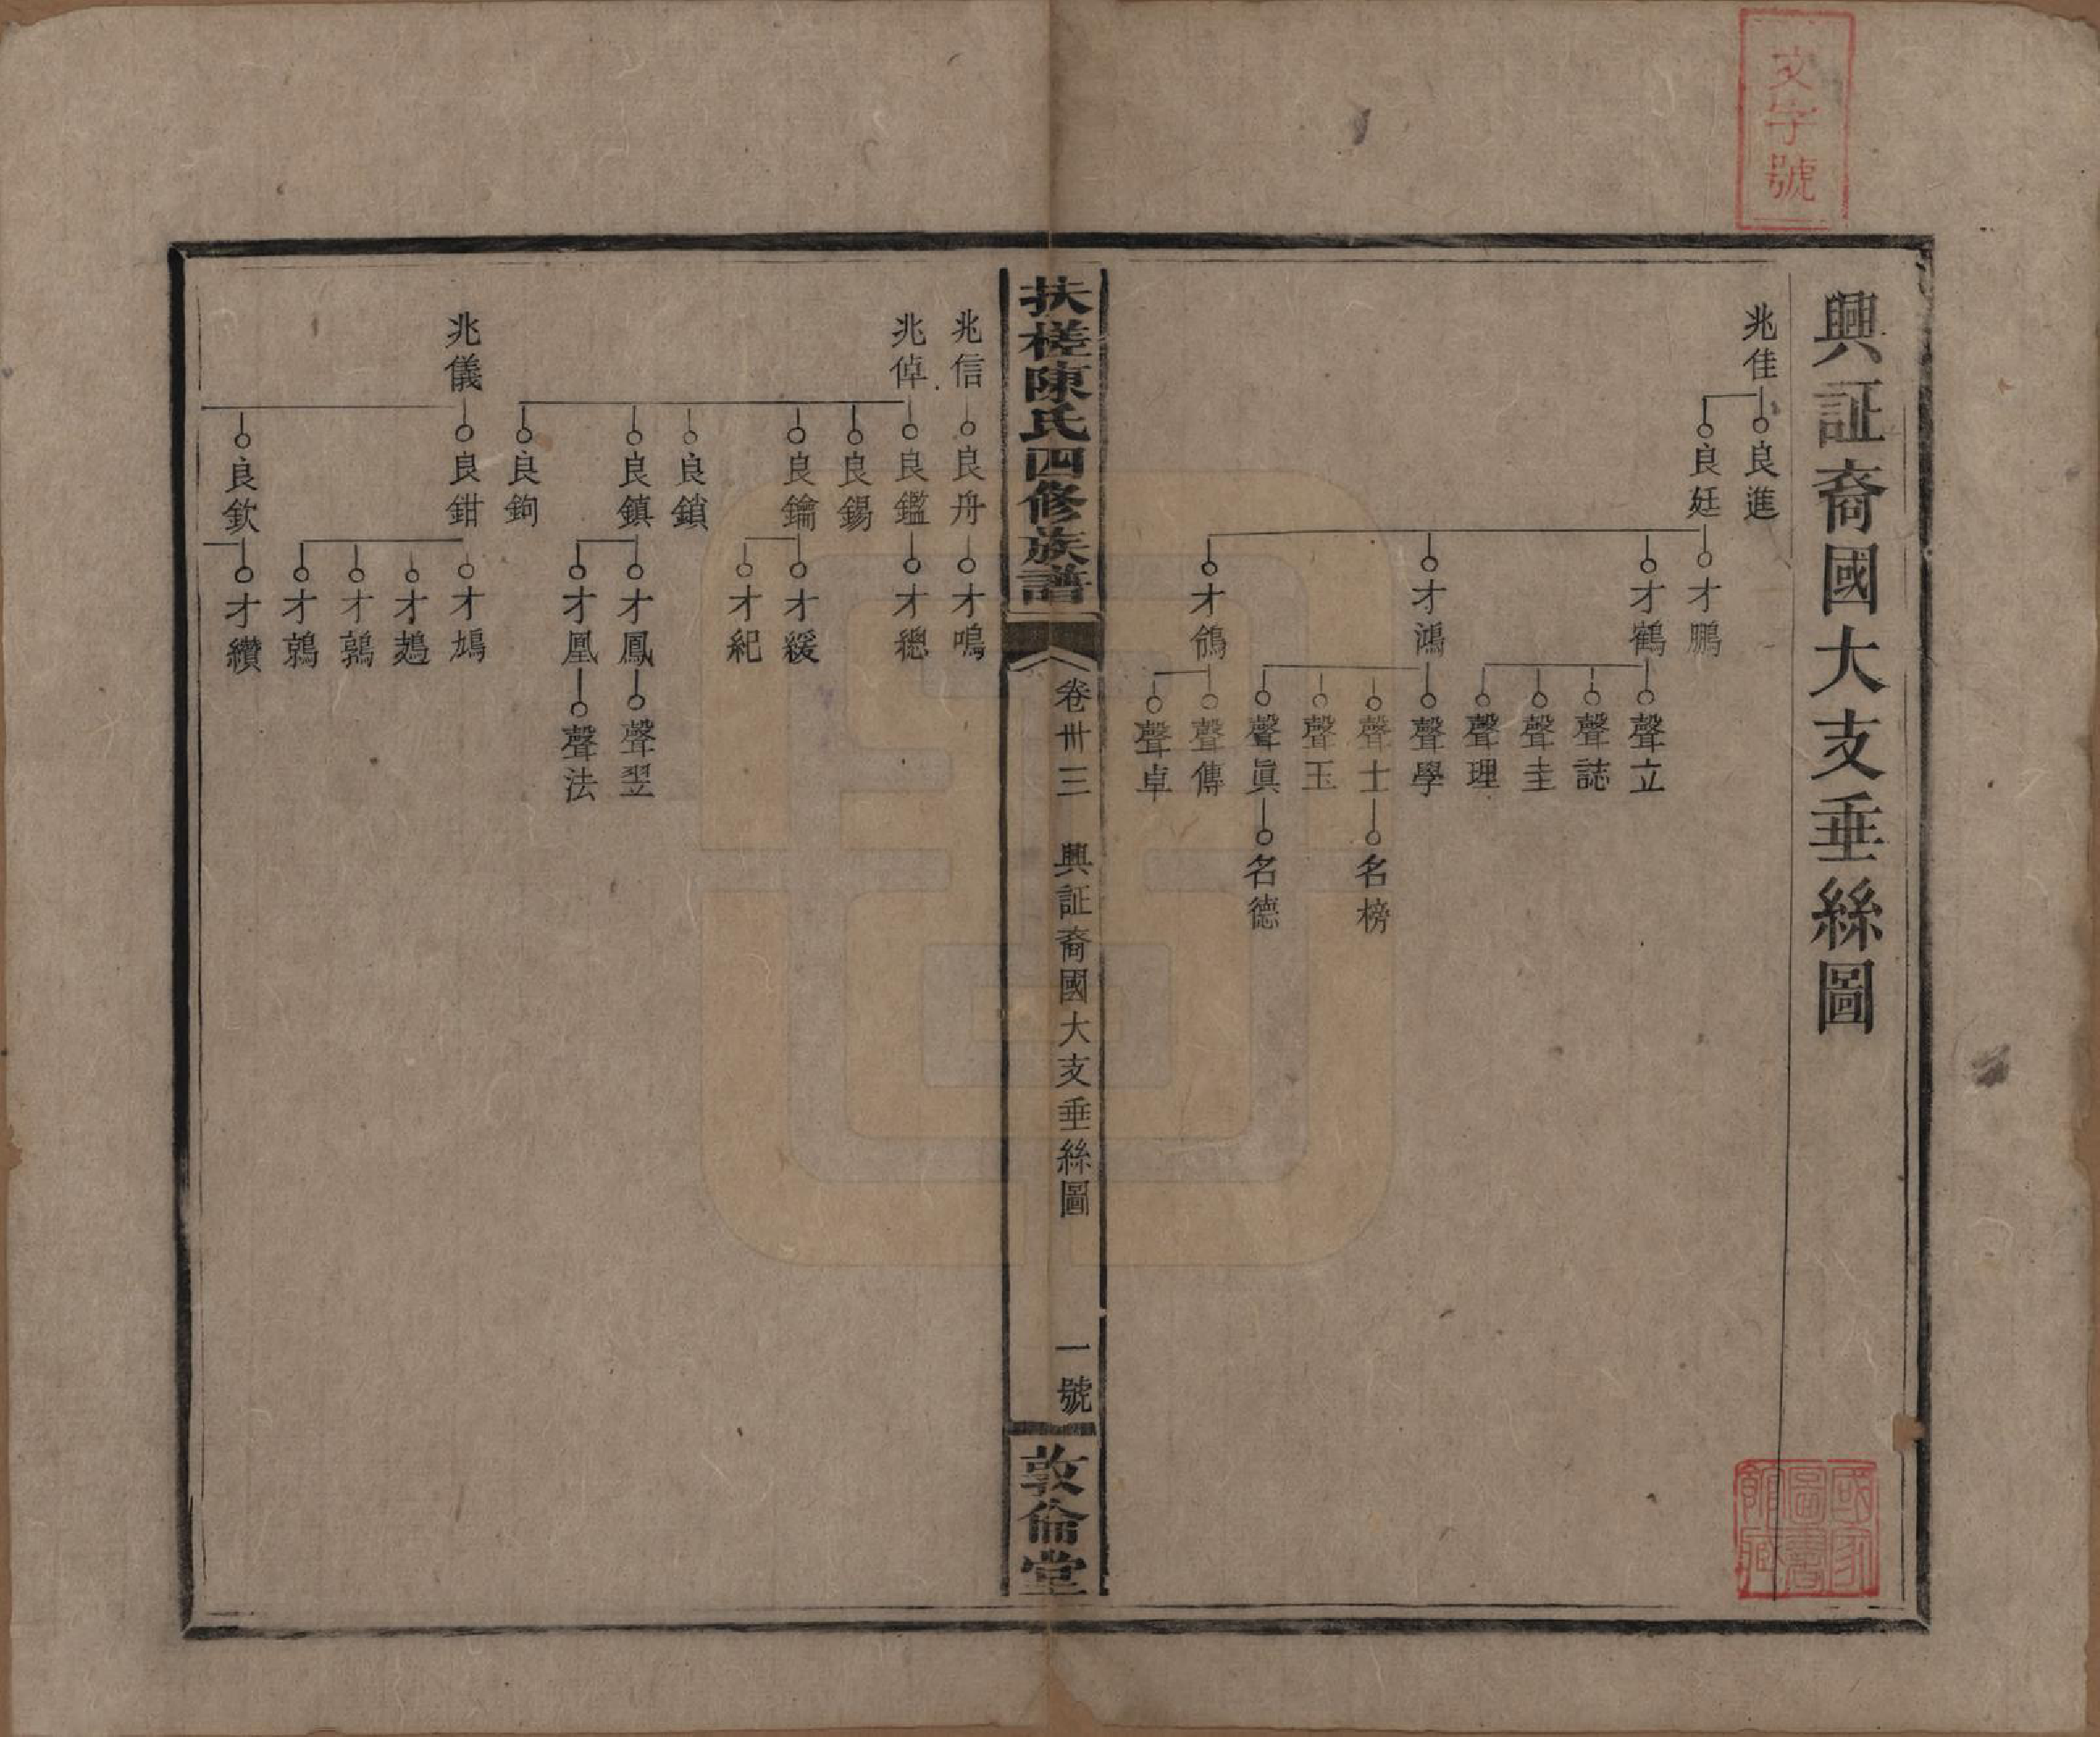 文字號
興証裔國大支垂絲圖
兆佳
良進
良廷
才鵬
才鶴
聲立
聲誌
聲圭
聲理
才鴻
聲學
聲士
名榜
聲玉
聲眞
名德
才鴿
聲傳
聲卓
扶槎陳氏四修族譜
卷卅三
興証裔國大支垂絲圖
一號
敦倫堂
兆信
良舟
才鳴
兆倬
良鑑
才總
良錫
良鑰
才緩
才紀
良鎖
良鎮
才鳳
聲翌
才凰
聲法
良鉤
兆儀
良鉗
才鳩
才鶉
才鶉
良欽
才纘
國家圖書館藏